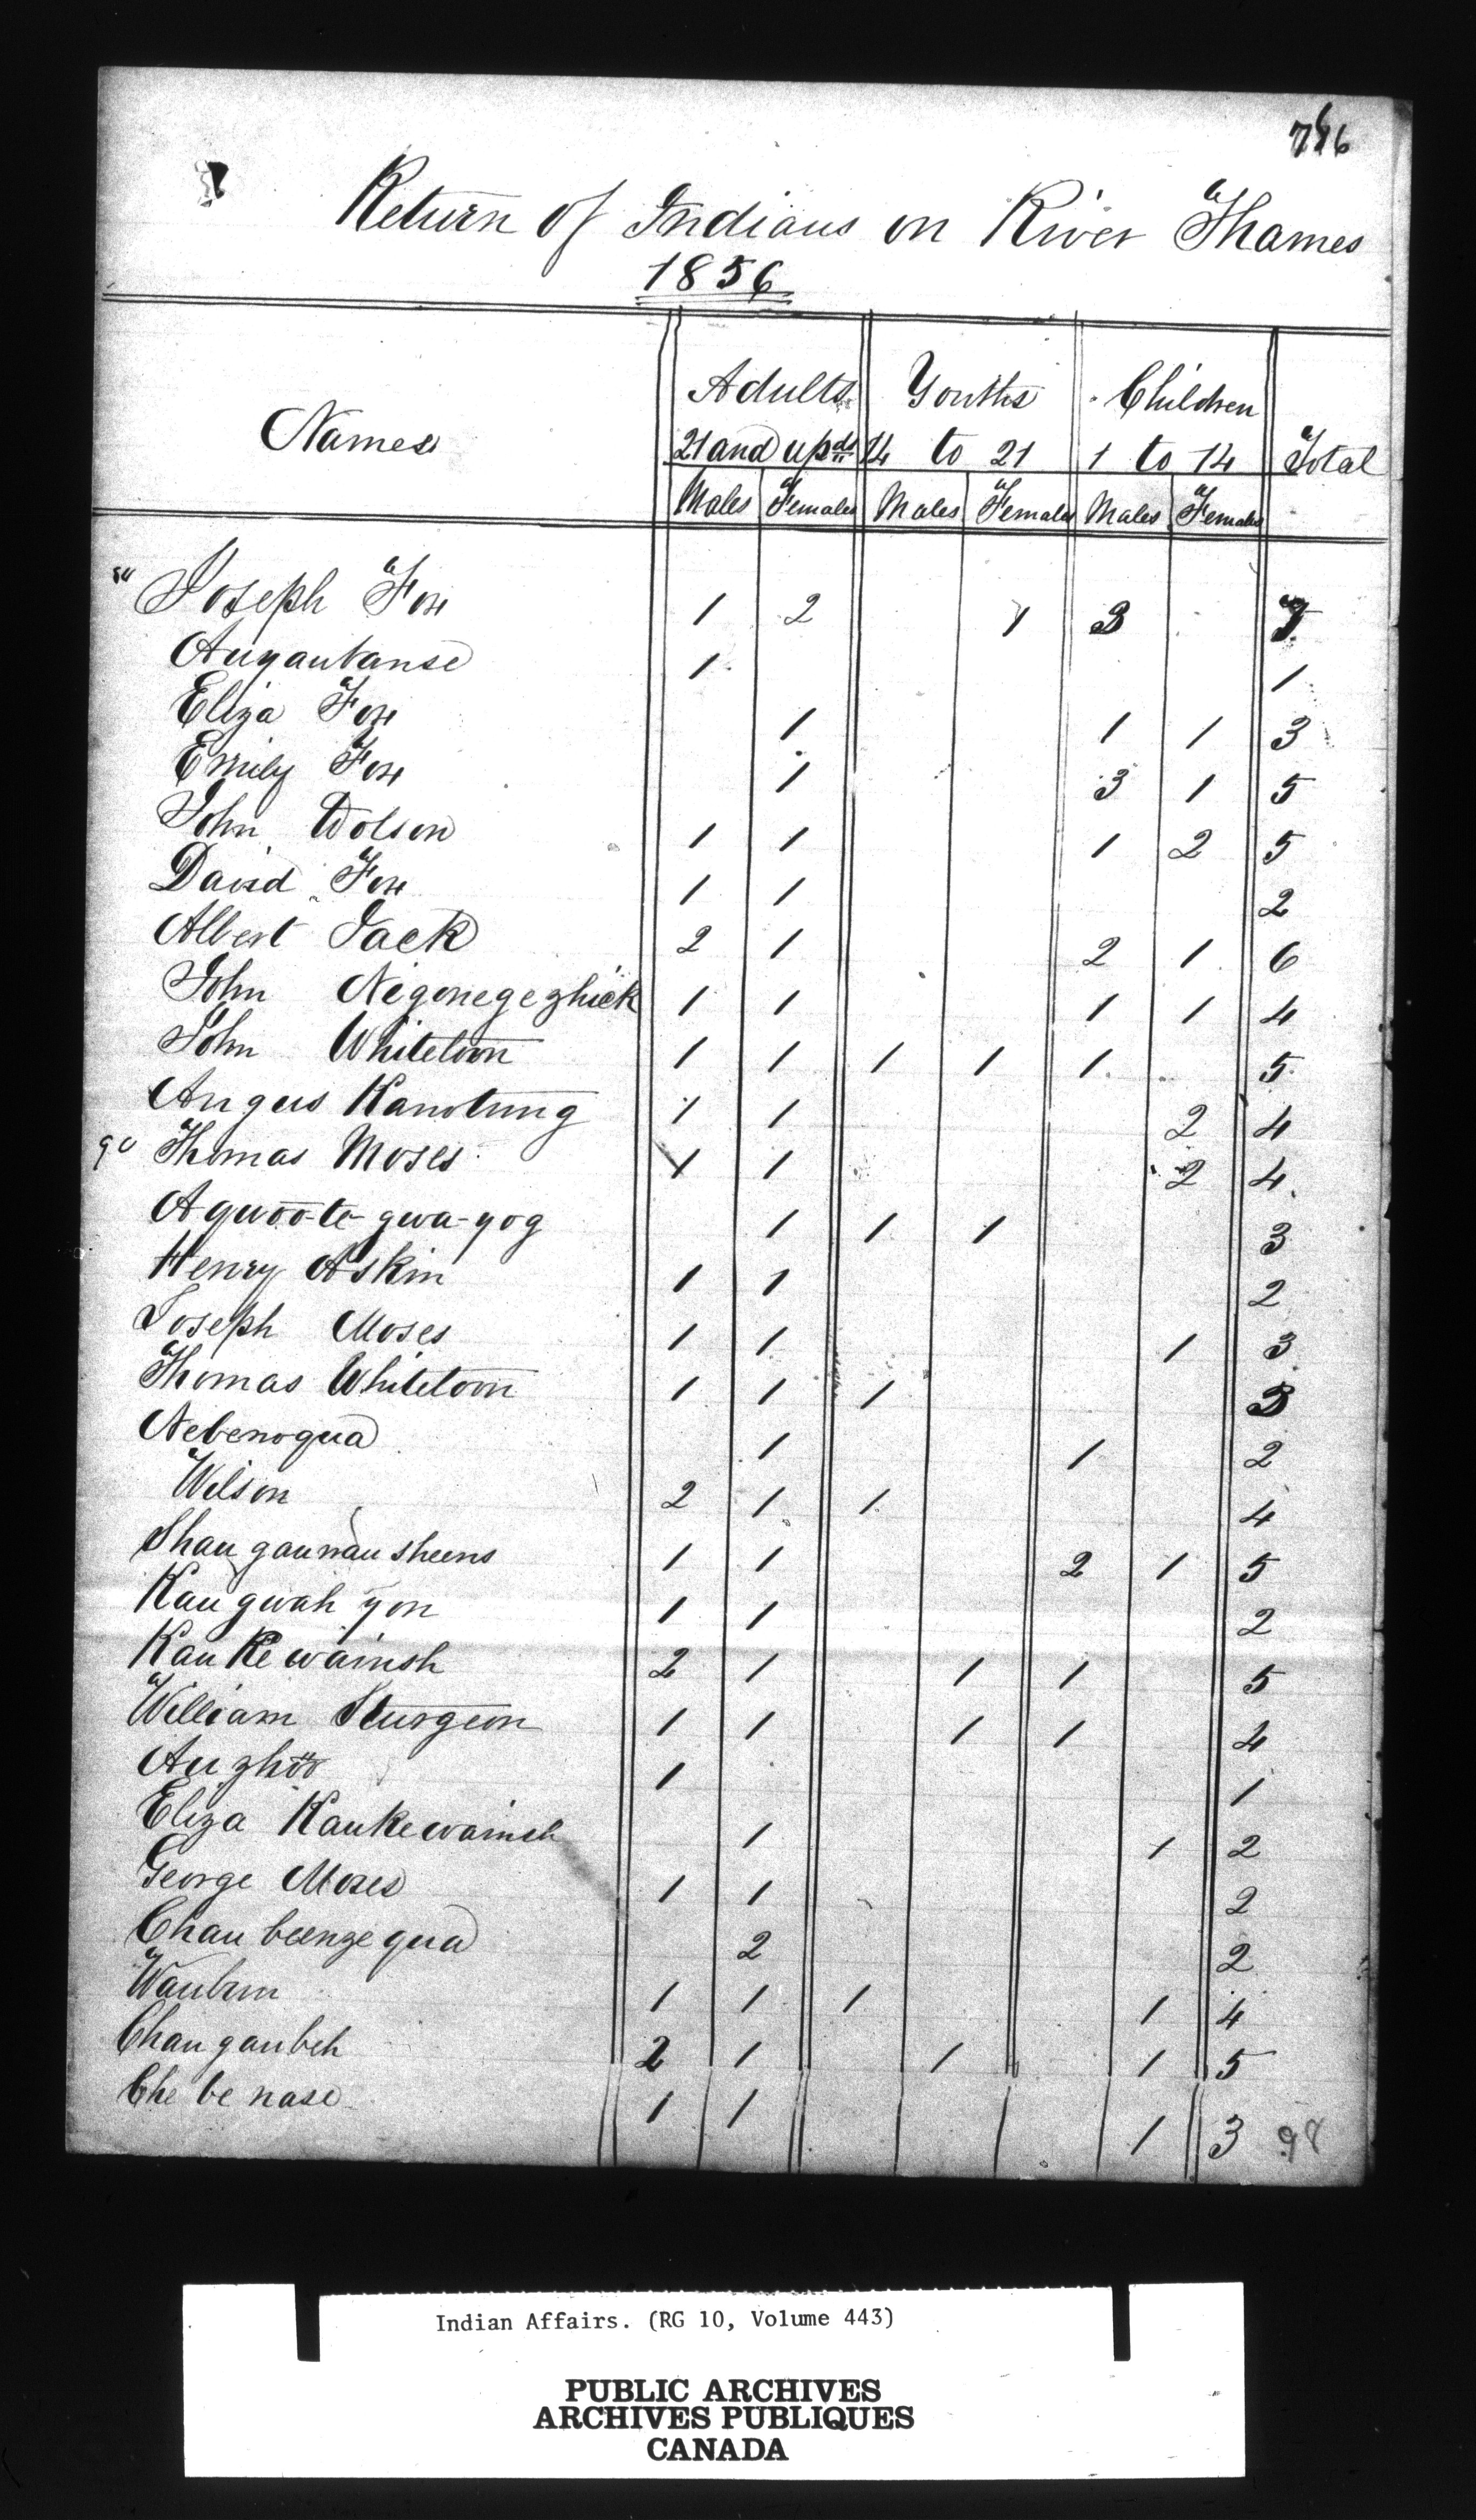 Return of Indians on River Thames
1856
Names Adults Youths Children Total
21 and upds 14 to 21 1 to 14
Males Females Males Females Males Females
Joseph Fox 1 2 1 3 7
Augaubanse 1 1
Eliza Fox 1 1 1 3
Emily Fox 1 3 1 5
John Dolson 1 1 1 2 5
David Fox 1 1 2
Albert Jack 2 1 2 1 6
John Nigonegezhick 1 1 1 1 4
John Whiteloon 1 1 1 1 1 5
Angus Kanotung 1 1 2 4
Thomas Moses 1 1 2 4
Aquoo-te-gwa-yog 1 1 1 3
Henry Askin 1 1 2
Joseph Moses 1 1 1 3
Thomas Whiteloon 1 1 1 3
Nebenoqua 1 1 2
Wilson 2 1 1 4
Shaugaunausheens 1 1 2 1 5
Kaugwahyon 1 1 2
Kaukewainsh 2 1 1 1 5
William Sturgeon 1 1 1 1 4
Auzhoo 1 1
Eliza Kaukewainsh 1 1 2
George Moses 1 1 2
Chaubeenzequa 2 2
Waubun 1 1 1 1 4
Chaugaubeh 2 1 1 1 5
Che be nase 1 1 1 3 98
Indian Affairs. (RG 10, Volume 443)
PUBLIC ARCHIVES
ARCHIVES PUBLIQUES
CANADA